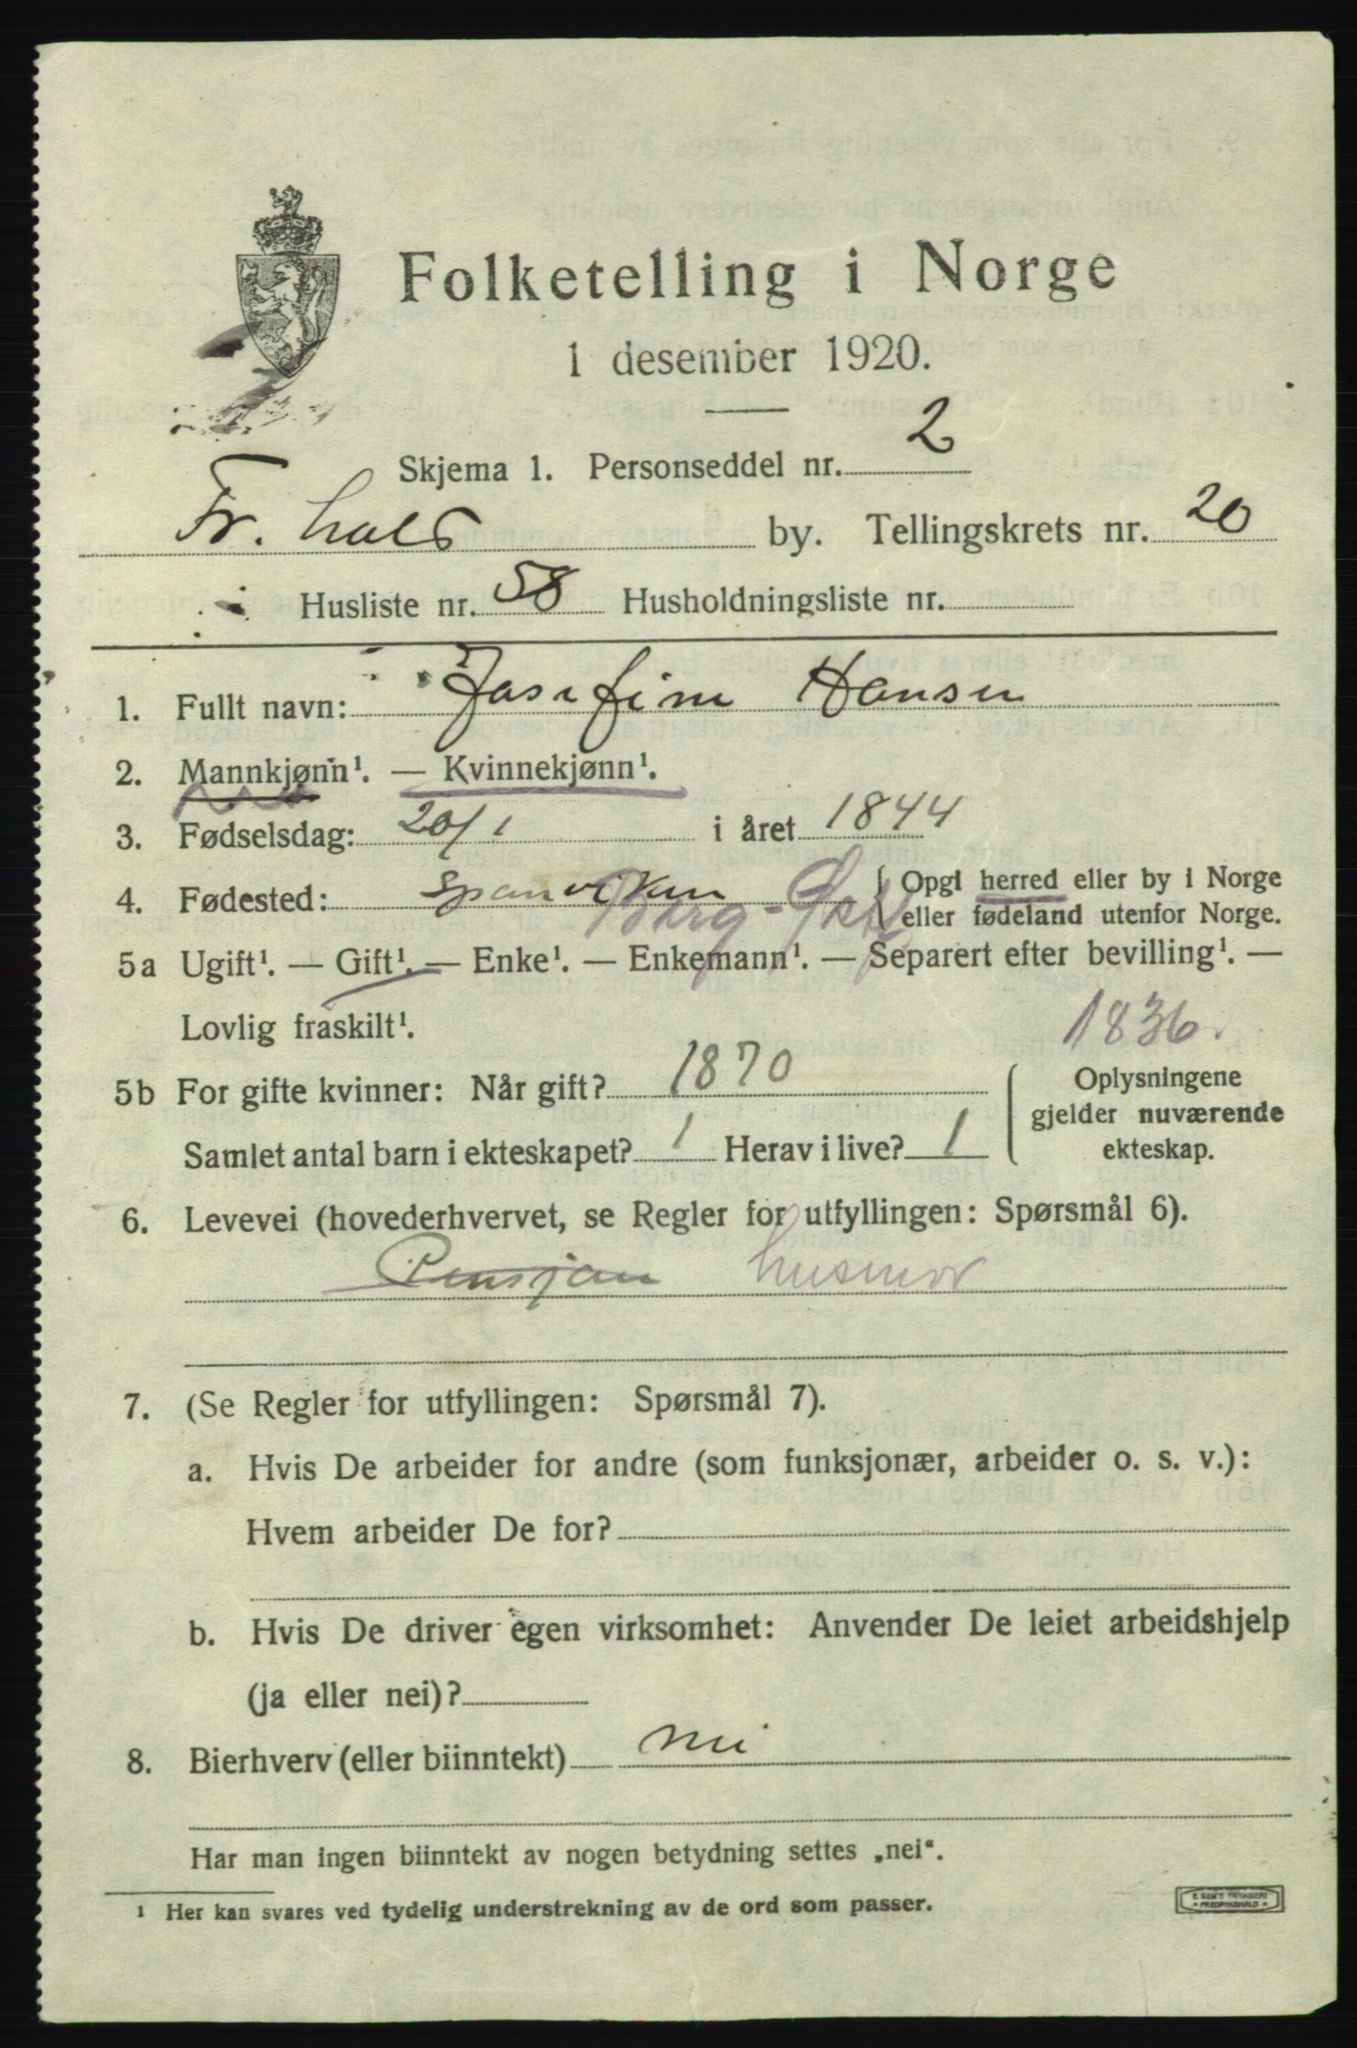 Folketelling i Norge
1 desember 1920.
Skjema 1. Personseddel nr. 2
Fr. hald by. Tellingskrets nr. 20
Husliste nr. 58 Husholdningsliste nr.
1. Fullt navn: Josefine Hansen
2. Mannkjønn¹. — Kvinnekjønn¹.
3. Fødselsdag: 20/1 i året 1844
4. Fødested: Sponvikan Berg - Østf { Opgi herred eller by i Norge
eller fødeland utenfor Norge.
5a Ugift¹. — Gift¹. — Enke¹. — Enkemann¹. — Separert efter bevilling¹. —
Lovlig fraskilt¹.
1836.
5b For gifte kvinner: Når gift? 1870
Samlet antal barn i ekteskapet? 1 Herav i live? 1
Oplysningene
gjelder nuværende
ekteskap.
6. Levevei (hovederhvervet, se Regler for utfyllingen: Spørsmål 6).
Pensjon husmor
7. (Se Regler for utfyllingen: Spørsmål 7).
a. Hvis De arbeider for andre (som funksjonær, arbeider o. s. v.):
Hvem arbeider De for?
b. Hvis De driver egen virksomhet: Anvender De leiet arbeidshjelp
(ja eller nei)?
8. Bierhverv (eller biinntekt) nei
Har man ingen biinntekt av nogen betydning settes „nei“.
¹ Her kan svares ved tydelig understrekning av de ord som passer.